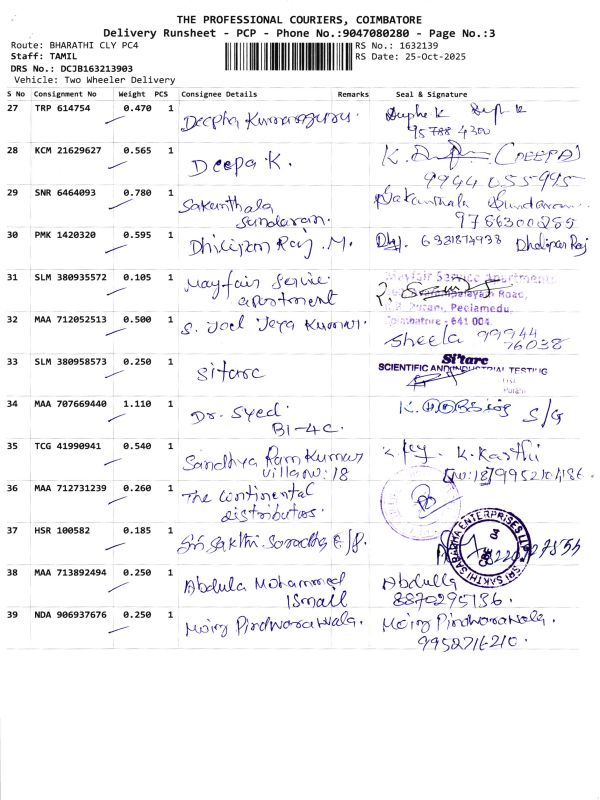 THE PROFESSIONAL COURIERS, COIMBATORE
Delivery Runsheet - PCP - Phone No.:9047080280 - Page No.:3
Route: BHARATHI CLY PC4 RS No.: 1632139
Staff: TAMIL RS Date: 25-Oct-2025
DRS No.: DCJB163213903
Vehicle: Two Wheeler Delivery
S No Consignment No Weight PCS Consignee Details Remarks Seal & Signature
27 TRP 614754 0.470 1 Deepha
95788 4300
28 KCM 21629627 0.565 1 Deepa K. K. (DEEPA)
9944 055995
29 SNR 6464093 0.780 1 Sakunthala Sakunthala Sundaram
Sundaram. 9786300255
30 PMK 1420320 0.595 1 Dhilipan Raj. M. Dhilipan Raj
31 SLM 380935572 0.105 1 Mayfair Service Mayfair Service Apartments
apartment Road,
Peelamedu,
Coimbatore - 641 004.
32 MAA 712052513 0.500 1 S. Joel Jeya Kumar. Sheela 99944
76038
33 SLM 380958573 0.250 1 Sitarc Si'tarc
SCIENTIFIC AND INDUSTRIAL TESTING
34 MAA 707669440 1.110 1 Dr. Syed. S/G
B1-4C.
35 TCG 41990941 0.540 1 Sandhya Ram Kumar K. Karthi
Villa no: 18
36 MAA 712731239 0.260 1 The Continental
distributors.
37 HSR 100582 0.185 1 Sri Sakthi SRI SAKTHI SABARHA ENTERPRISES
38 MAA 713892494 0.250 1 Abdula Mohammed Abdulla
Ismail 8870295136.
39 NDA 906937676 0.250 1 Moiz Pindwarawala. Moiz Pindwarawala.
9952716210.